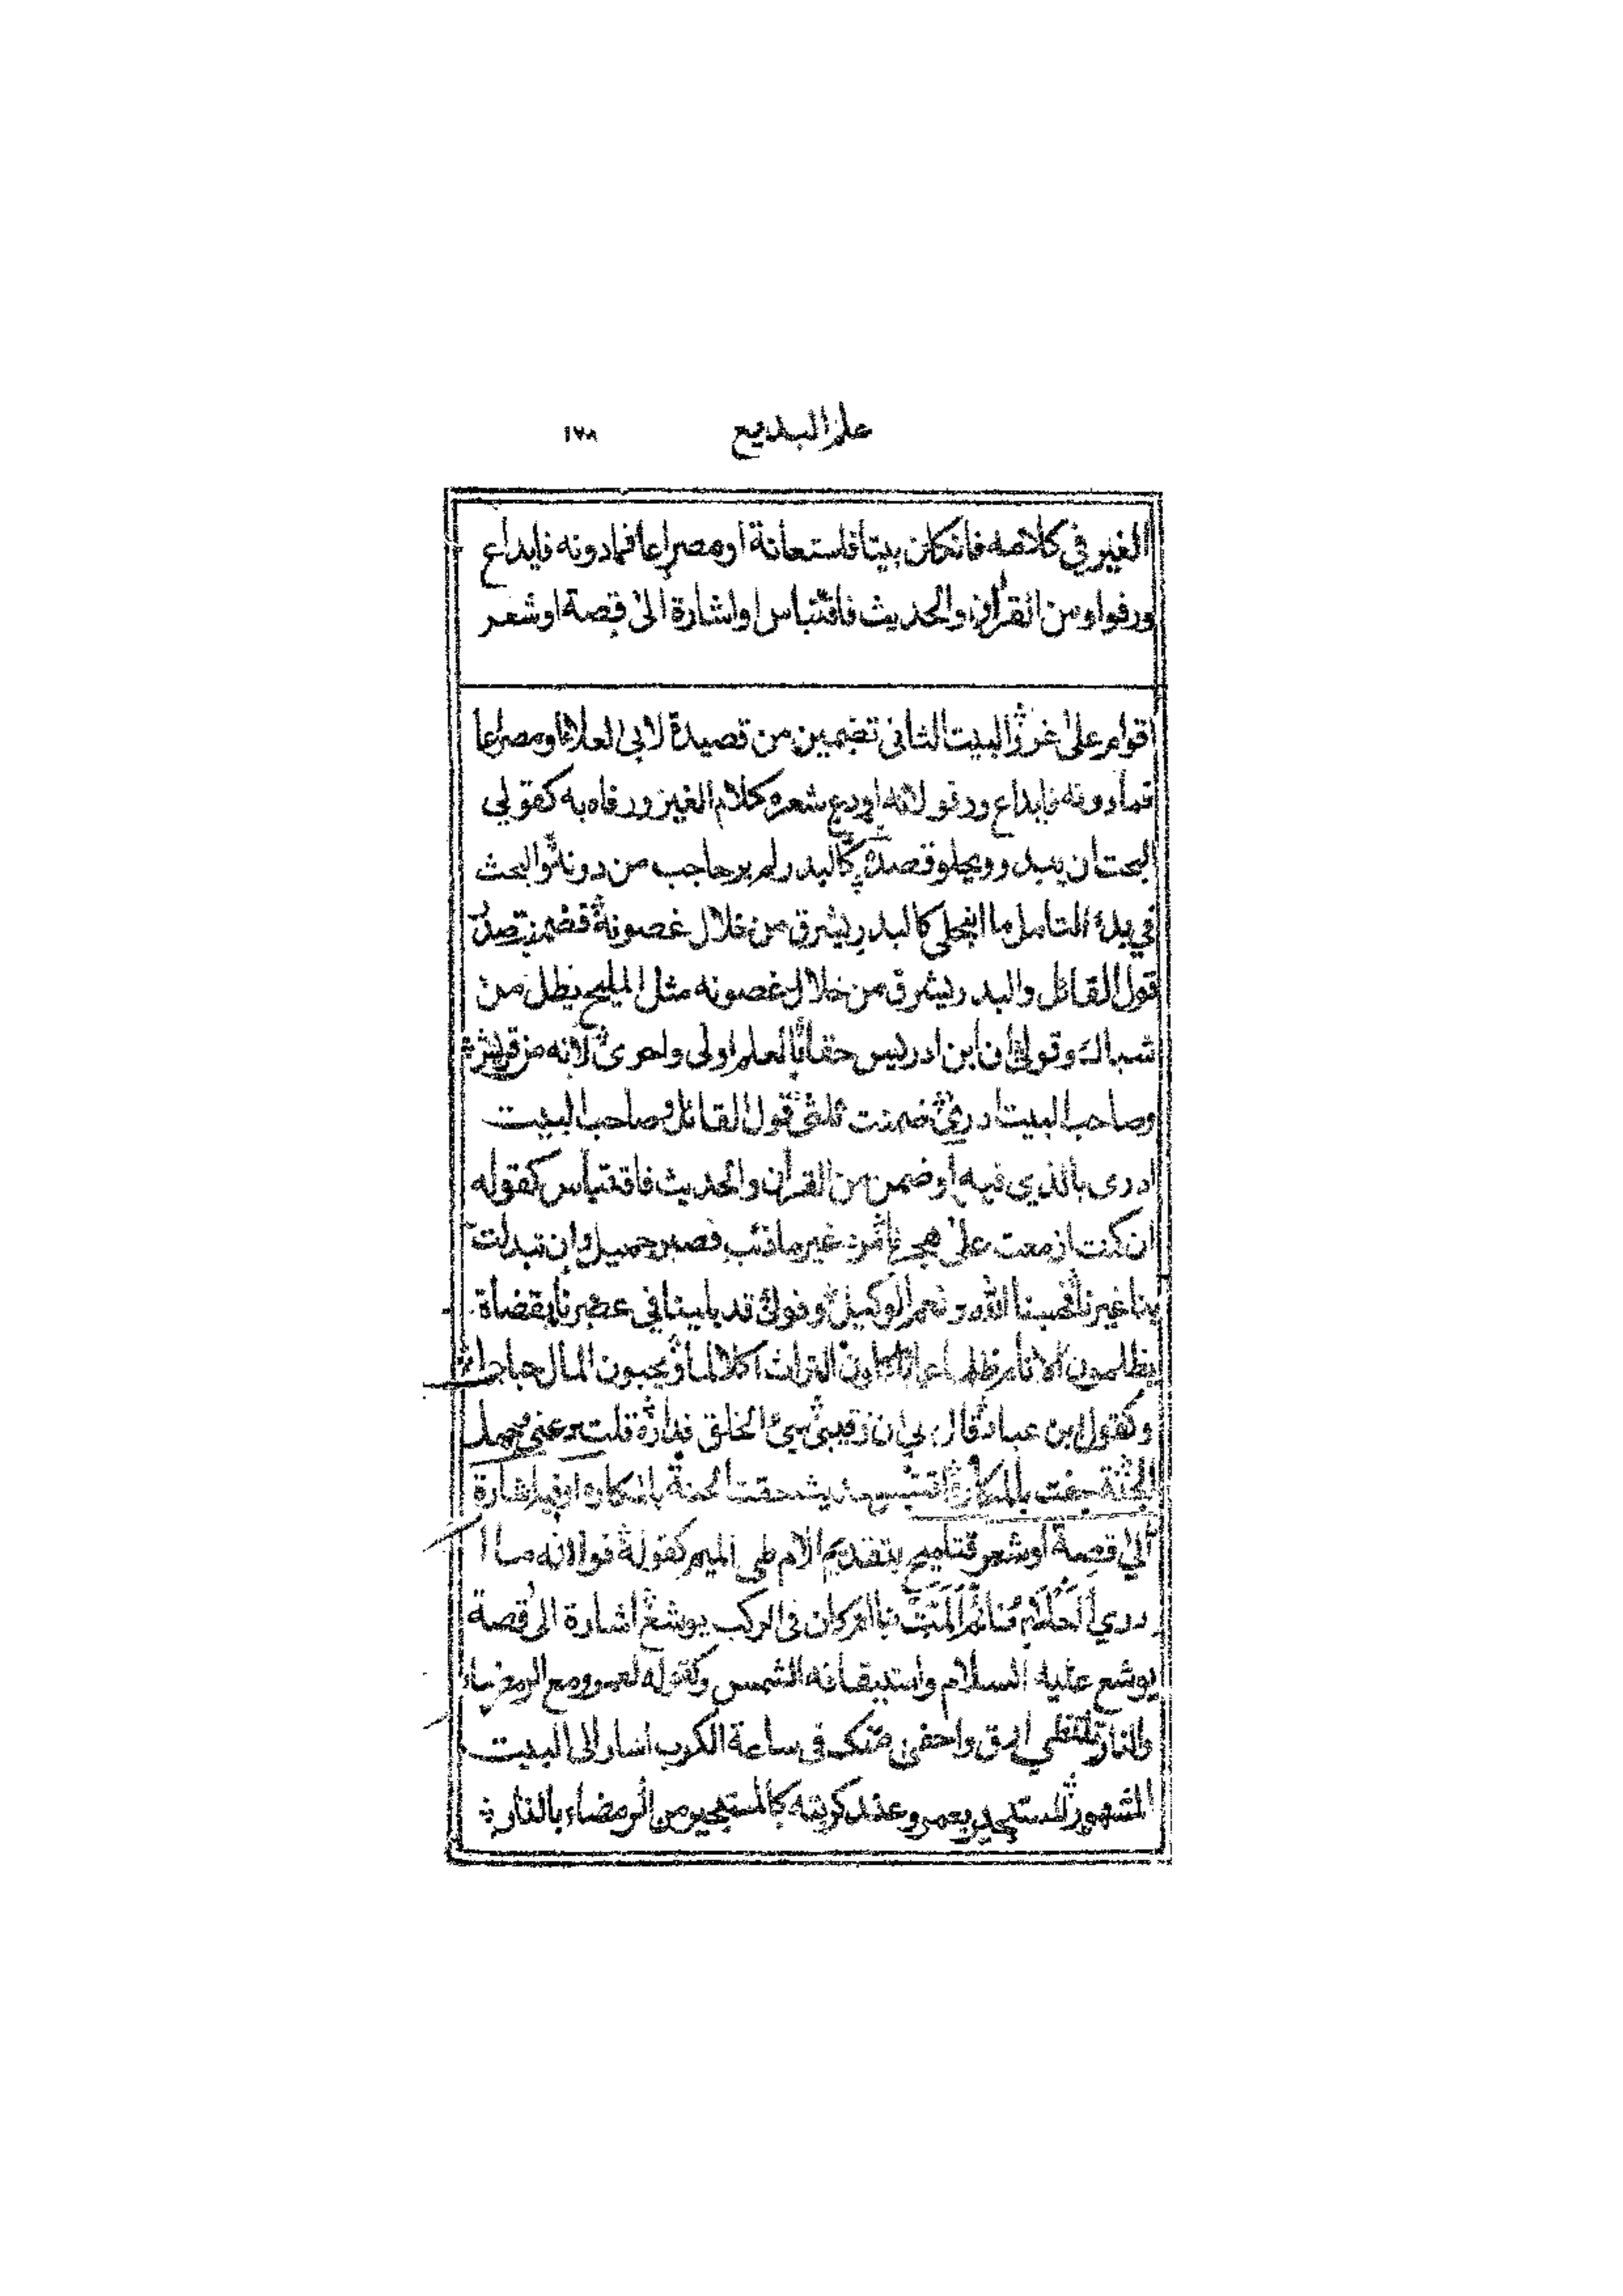 علم البديع ١٧٨
الغير في كلامه فانكان بيتا فاستعانة او مصراعا فمادونه فايداع
ورفو او من القرأن والحديث فاقتباس او اشارة الى قصة او شعر
اقوام على غرر البيت الثانى تضمين من قصيدة لابى العلاء او مصراعا
فمادونه فايداع ورفو لانه اودع شعره كلام الغير ورفاه به كقولي
البحث ان يبدو ويجلو قصده كالبدر لم ير حاجب من دونه والبحث
في بدء التامل ما انجلي كالبدر يشرق من خلال غصونه فضمنت صدر
قول القائل والبدر يشرق من خلال غصونه مثل المليح يطل من
شباك وقولي ان ابن ادريس حقا بالعلم اولى واحرى لانه من قريش
وصاحب البيت ادرى ضمنت ثلثى قول القائل وصاحب البيت
ادرى بالذي فيه او ضمن من القرأن والحديث فاقتباس كقوله
ان كنت ازمعت على هجرنا من غير ما ذنب فصبر جميل وان تبدلت
بنا غيرنا فحسبنا الله ونعم الوكيل وقولى قد بلينا في عصرنا بقضاة
يظلمون الانام ظلما عما ياكلون التراث اكلا لما ويحبون المال حبا جما
وكقول ابن عباد قال لي ان رقيبى سيئ الخلق فداره قلت دعنى وجهك
الجنة حفت بالمكاره اقتبس حديث حفت الجنة بالمكاره او فيه اشارة
الى قصة او شعر فتلميح بتقديم الام على الميم كقوله فوالله ما ا
دري أأحلام نائم المت بنا ام كان في الركب يوشع اشارة الى قصة
يوشع عليه السلام واستيقافه الشمس وكقوله لعمرو مع الرمضاء
والنار تلتظي ارق واحفى منك في ساعة الكرب اشار الى البيت
المشهور المستجير بعمرو عند كربته كالمستجير من الرمضاء بالنار